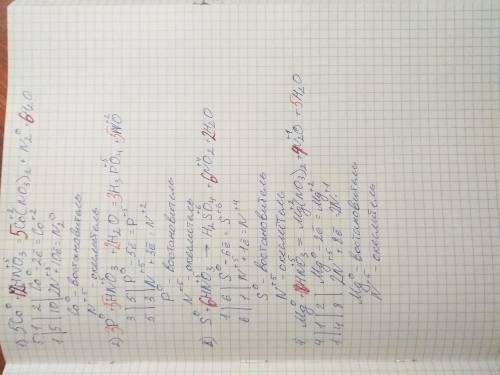 1) 5Co⁰ + 12HNO₃⁺⁵ = 5Co⁺²(NO₃)₂ + N₂⁰ + 6H₂O
5|1|2| Co⁰ - 2ē = Co⁺²
1|5|10| 2N⁺⁵ + 10ē = N₂⁰
Co⁰ - востановитель
N⁺⁵ - окислитель
2) 3P⁰ + 5HNO₃⁺⁵ + 2H₂O = 3H₃P⁺⁵O₄ + 5N⁺²O
3|5| P⁰ - 5ē = P⁺⁵
5|3| N⁺⁵ + 3ē = N⁺²
P⁰ - востановитель
N - окислитель
S⁰ + 6HNO₃⁺⁵ → H₂S⁺⁶O₄ + 6N⁺⁴O₂ + 2H₂O
1|6| S⁰ - 6ē = S⁺⁶
6|1| N⁺⁵ + 1ē = N⁺⁴
S⁰ - востановитель
N⁺⁵ - окислитель
Mg⁰ + HNO₃⁺⁵ = Mg⁺²(NO₃)₂ + N₂⁺¹O + 5H₂O
4|1|2| Mg⁰ - 2ē = Mg⁺²
1|4|8| 2N⁺⁵ + 8ē = 2N⁺¹
Mg⁰ - востановитель
N⁺⁵ - окислитель